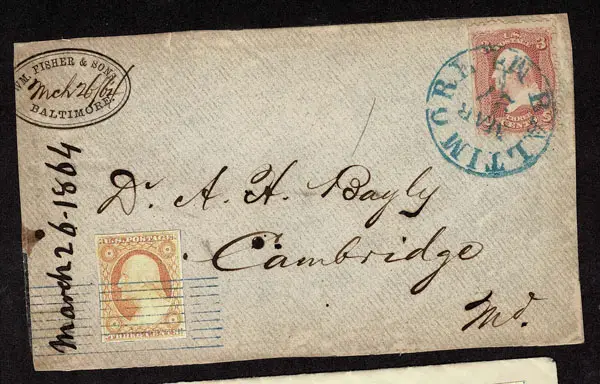 WM. FISHER & SONS
Mch 26/64
BALTIMORE.
BALTIMORE
MAR
U.S.
POSTAGE
3
THREE
CENTS
Dr. A. H. Bayly
Cambridge
Md.
March 26-1864
U.S. POSTAGE
THREE CENTS